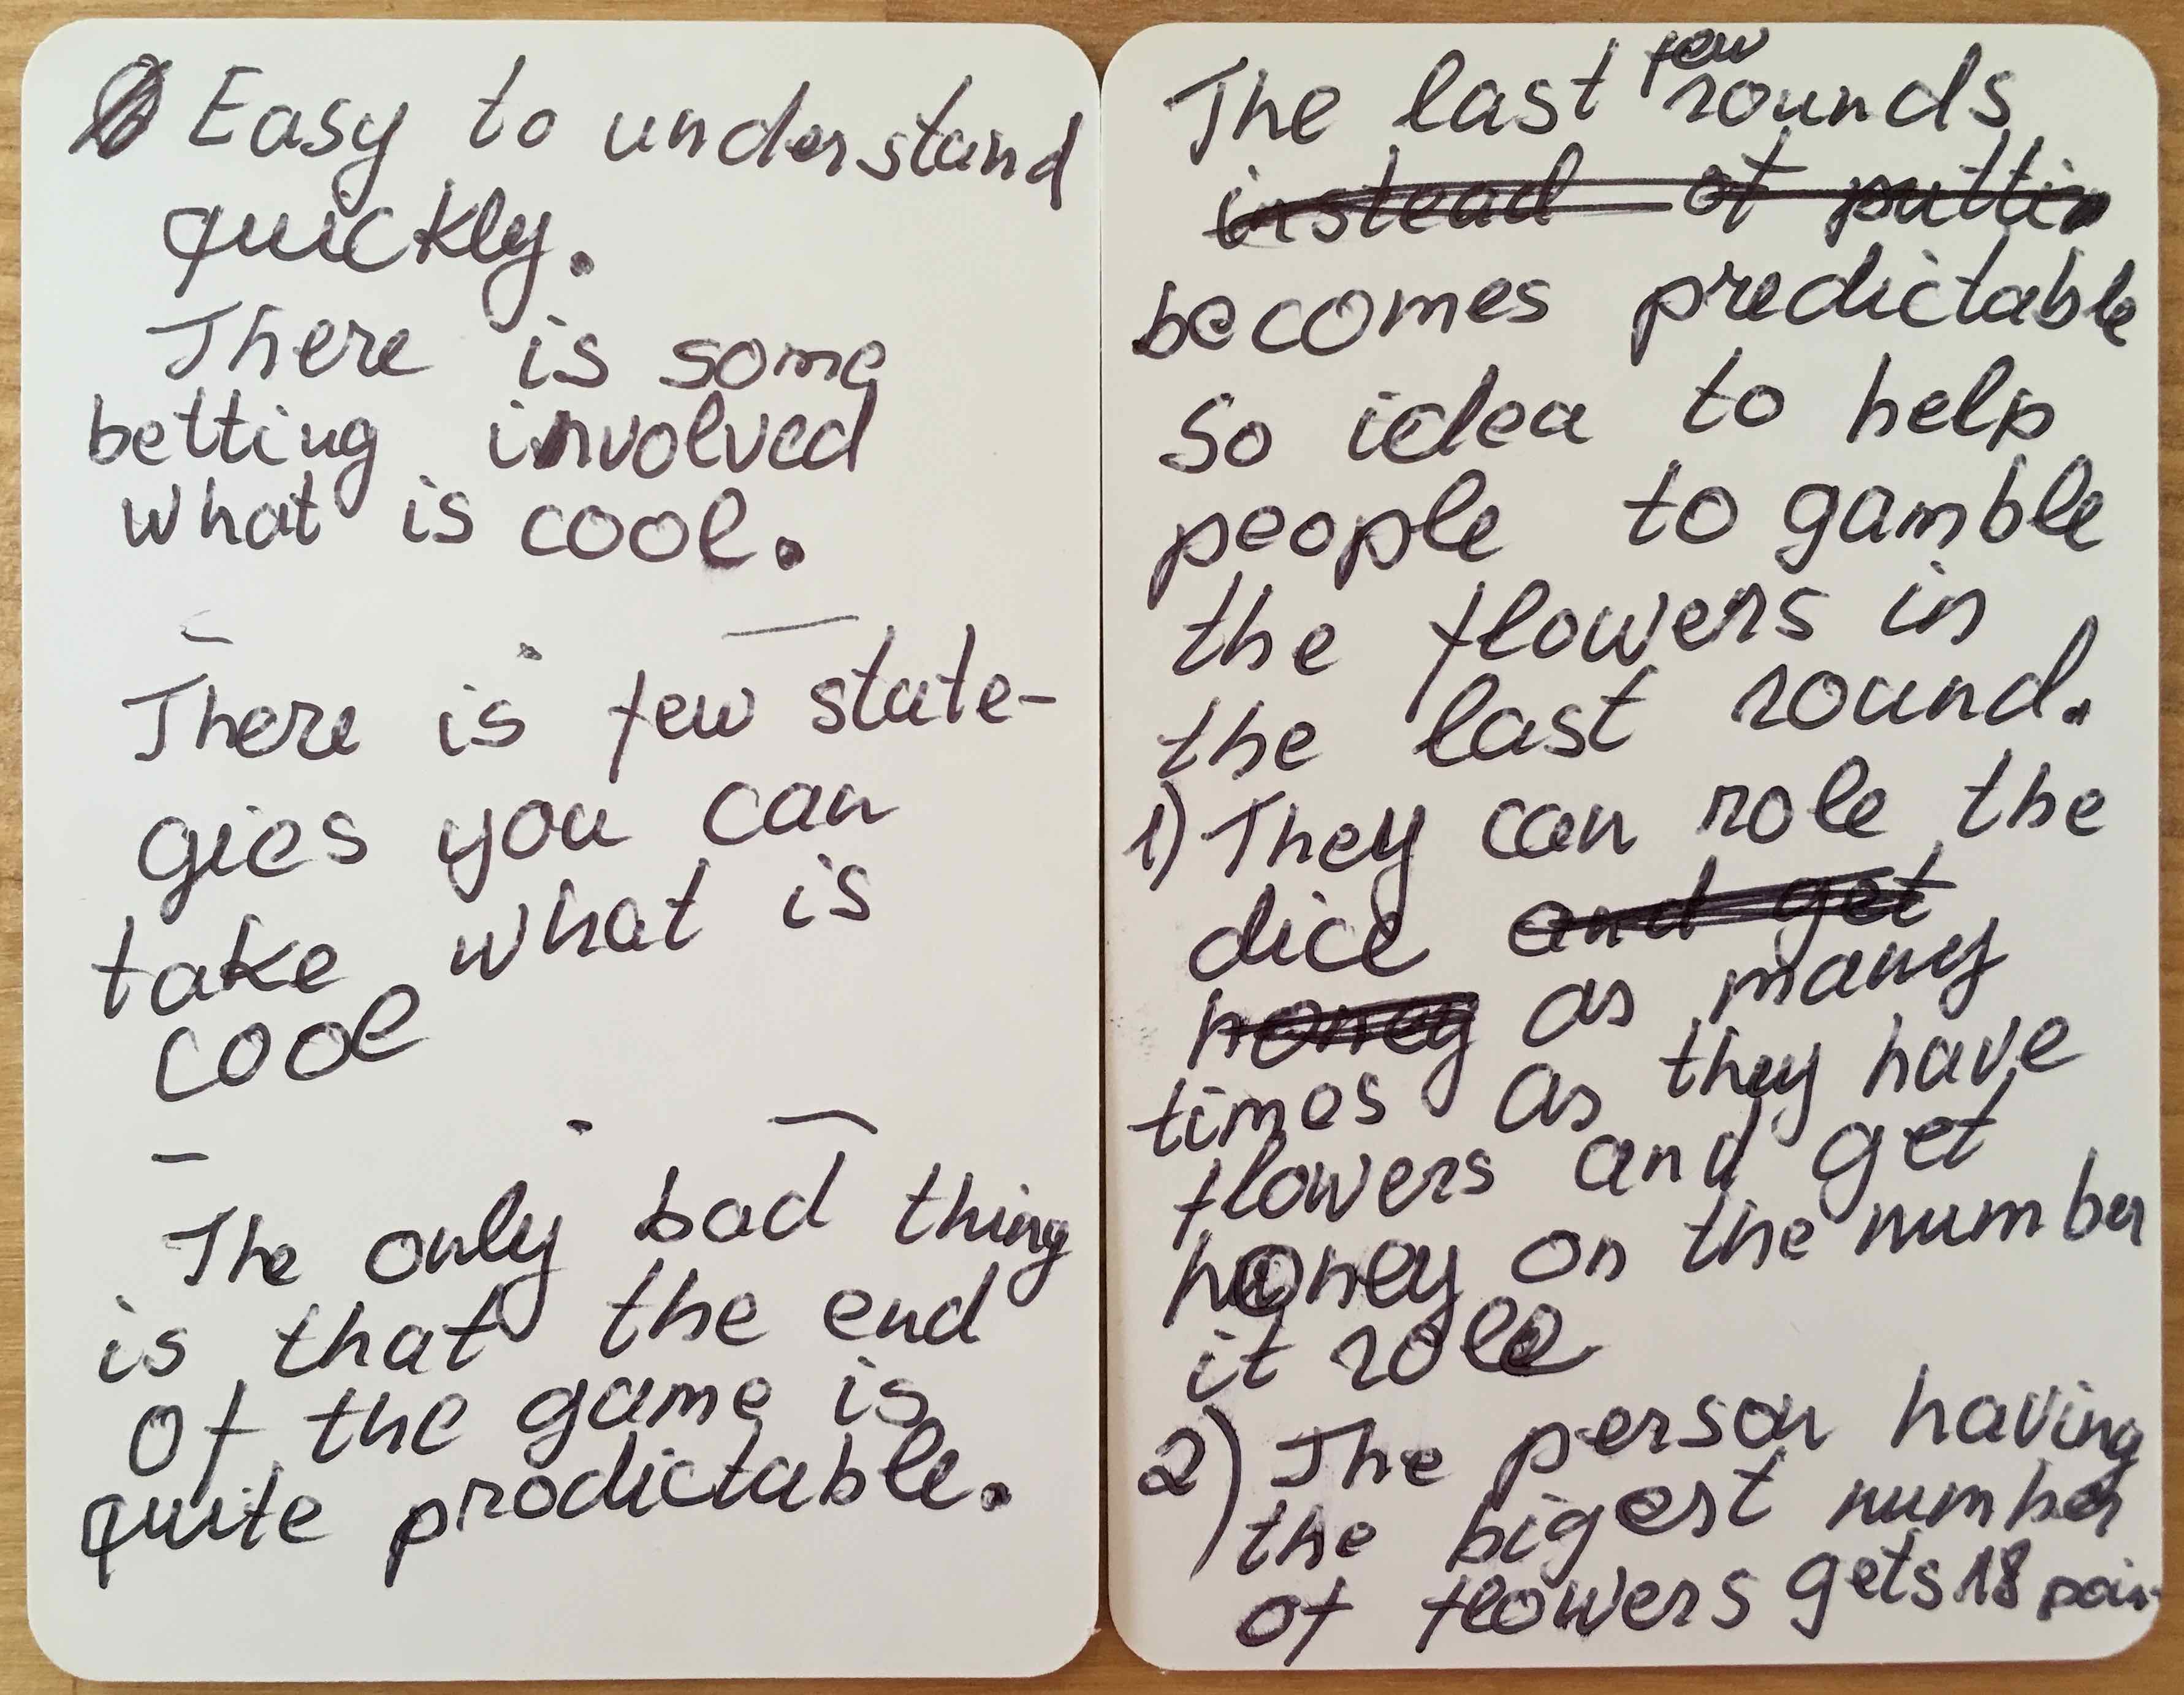 Easy to understand
quickly.
There is some
betting involved
what is cool.
There is few state-
gies you can
take what is
cool
The only bad thing
is that the end
of the game is
quite prodictable.
The last few rounds
instead of puttin
becomes predictable
so idea to help
people to gamble
the flowers in
the last round.
1) They can role the
dice and get
honey as many
times as they have
flowers and get
honey on the number
it role
2) The person having
the bigest number
of flowers gets 18 poin